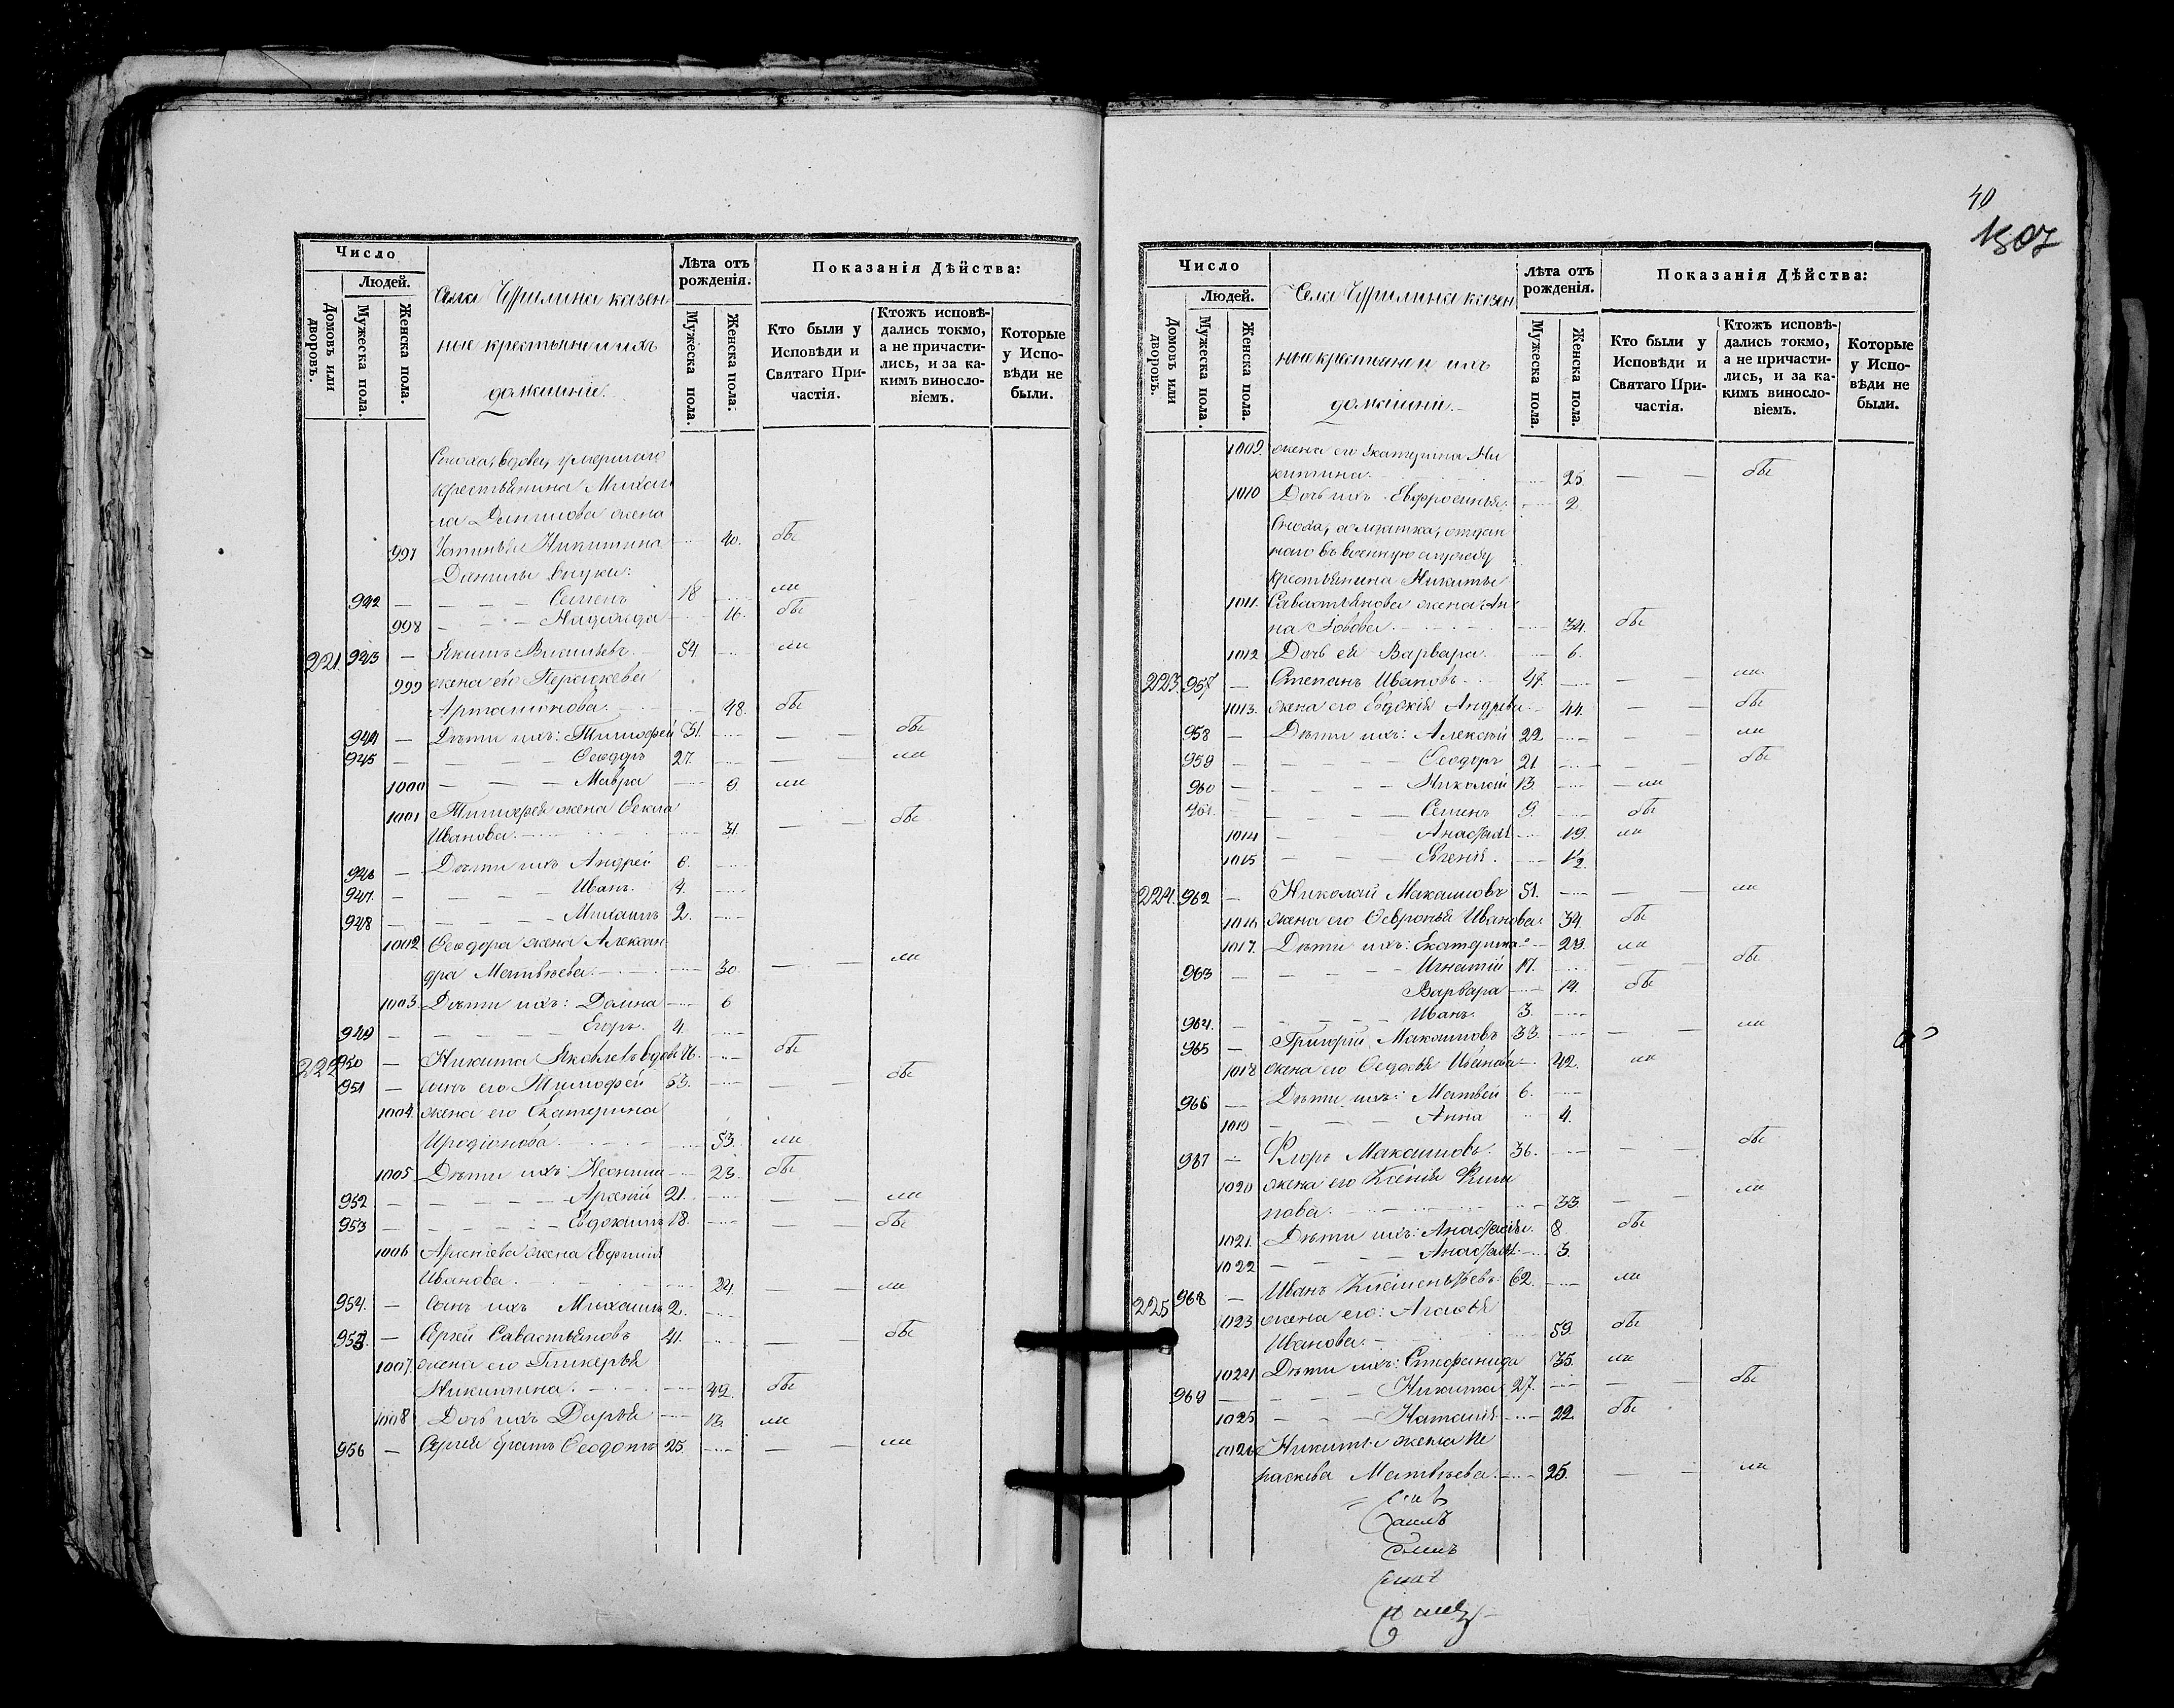 Число
Людей.
Домовъ или дворовъ.
Мужеска пола.
Женска пола.
Села казен
ные крестьяне и ихъ
домашніе.
Лѣта отъ рожденія.
Мужеска пола.
Женска пола.
Показанія Дѣйства:
Кто были у Исповѣди и Святаго Причастія.
Ктожъ исповѣдались токмо, а не причастились, и за какимъ винословіемъ.
Которые у Исповѣди не были.
Сноха, вдова, умершаго
крестьянина Михаи
ла Данилова жена
997 Устинья Никитина 40. бы
Данилы внуки:
942 — Семенъ 18 ли
998 — Надежда 16. бы
221. 943 — Якимъ 54. ли
999 жена его Параскева
Артамонова. 48. бы
944 — Дѣти ихъ: Тимофей 31. — — бы
945 — Ѳеодоръ 27. — — ли
1000 — Мавра 9. ли
1001 Тимофея жена Ѳекла
Иванова. 31. — — бы
946 — Дѣти ихъ Андрей 6.
947. — Иванъ. 4.
948 — Михаилъ 2.
1002 Ѳеодора жена Алексан
дра Матвѣева. 30. — — ли
1003. Дѣти ихъ: Домна 6
949 — Егоръ. 4.
222 950 — Никита Яковлевъ вдовъ 76. бы
951 — сынъ его Тимофей 53. — — бы
1004. жена его Екатерина
Иродіонова 53. ли
1005 Дѣти ихъ: 23. бы
952 — Арсеній 21. — — ли
953 — Евдокимъ 18. — — бы
1006 Арсеніева жена Евфимія
Иванова. 24. — — ли
954. — Сынъ ихъ Михаилъ 2.
955. — Сергѣй Савастьяновъ 41. — — бы
1007. жена его Гликерья
Никитина. 42. бы
1008 Дочь ихъ Дарья 13. ли
956 — Сергѣя братъ Ѳеодотъ 25. — — ли
40
1307
Число
Людей.
Домовъ или дворовъ.
Мужеска пола.
Женска пола.
Села казен
ные крестьяне и ихъ
домашніе.
Лѣта отъ рожденія.
Мужеска пола.
Женска пола.
Показанія Дѣйства:
Кто были у Исповѣди и Святаго Причастія.
Ктожъ исповѣдались токмо, а не причастились, и за какимъ винословіемъ.
Которые у Исповѣди не были.
1009. жена его Екатерина Ни
китина. 25. — — бы
1010 Дочь ихъ Евфросинья. 2.
Сноха, солдатка, отдан
наго въ военную службу
крестьянина Никиты
1011. Савастьянова жена Ан
на 34. бы
1012 Дочь ея Варвара. 6.
223. 957 — Степанъ Ивановъ 47. — — ли
1013. жена его Евдокія Андреева 44. — — бы
958 — Дѣти ихъ: Алексѣй 22 — — ли
959 — Ѳеодоръ 21 — — бы
960 — Николай 13. — ли
961. — Семенъ 9. бы
1014 — Анастасія 19. ли
1015 — Евгенія. 1/2
224. 962 — Николай Максимовъ 51. — — ли
1016 жена его Ѳевронья Иванова 34. бы
1017. Дѣти ихъ: Екатерина 23. ли
963 — Игнатій 17. — — бы
Варвара 14. бы
964. — Иванъ. 3.
965 — Григорій Максимовъ 33. — — ли
1018 жена его Ѳедосья Иванова 42. ли
966 — Дѣти ихъ: Матвѣй 6.
1019 — Анна 4.
967 — Егоръ Максимовъ. 36. — — бы
1020 жена его Ксенія Фили
пова. 33. — — ли
1021. Дѣти ихъ: Анастасія. 8. бы
1022 — Анастасія 3.
225 968 — Иванъ 62. ли
1023 жена его: Агафья
Иванова. 59. бы
1024 Дѣти ихъ: Стефанида 35. ли
969 — Никита 27. — — бы
1025 — Наталія 22. бы
1026 Никиты жена Па
раскева Матвѣева. 25. — — ли